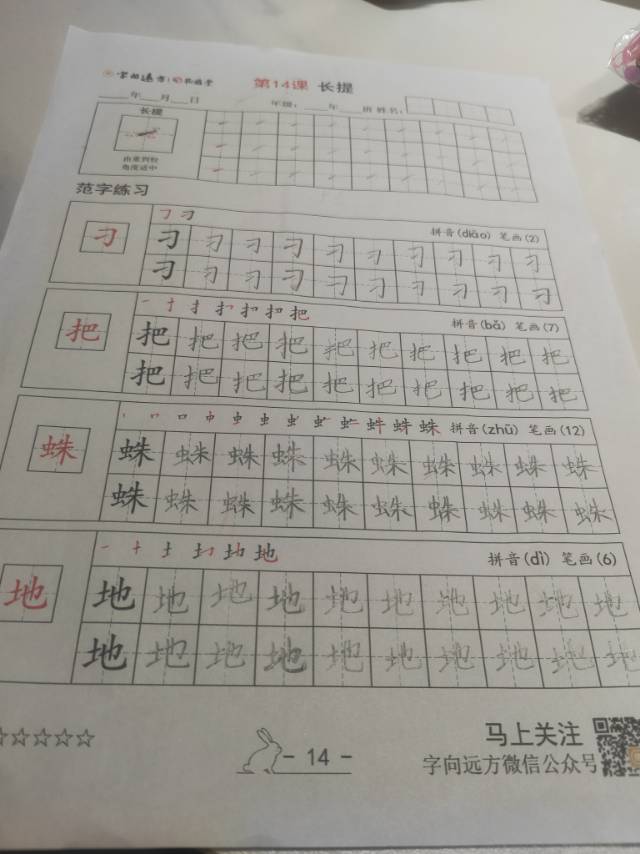 第14课 长提
年 月 日 年级: 年 班 姓名:
长提
角度适中
范字练习
刁 拼音(diāo) 笔画(2)
刁 刁 刁 刁 刁 刁 刁 刁 刁 刁
刁 刁 刁 刁 刁 刁 刁 刁 刁 刁
把 拼音(bǎ) 笔画(7)
把 把 把 把 把 把 把 把 把 把
把 把 把 把 把 把 把 把 把 把
蛛 拼音(zhū) 笔画(12)
蛛 蛛 蛛 蛛 蛛 蛛 蛛 蛛 蛛 蛛
蛛 蛛 蛛 蛛 蛛 蛛 蛛 蛛 蛛 蛛
地 拼音(dì) 笔画(6)
地 地 地 地 地 地 地 地 地 地
地 地 地 地 地 地 地 地 地 地
☆☆☆☆☆
- 14 -
马上关注
字向远方微信公众号